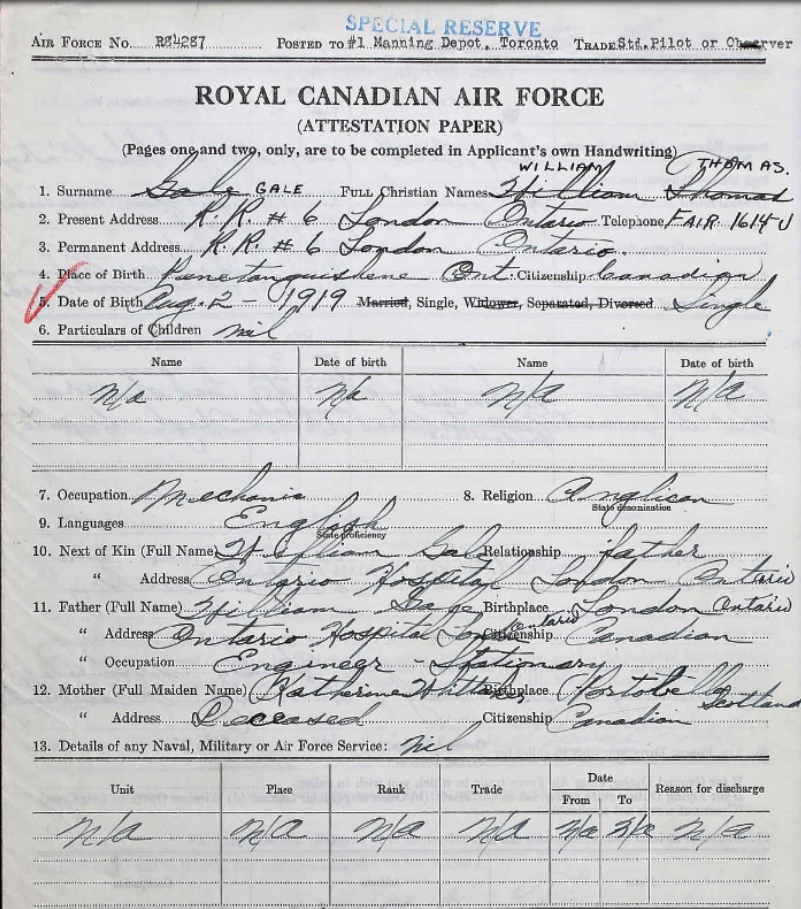 SPECIAL RESERVE
AIR FORCE No. R84287 POSTED TO #1 Manning Depot. Toronto TRADE Std. Pilot or Observer
ROYAL CANADIAN AIR FORCE
(ATTESTATION PAPER)
(Pages one and two, only, are to be completed in Applicant's own Handwriting)
WILLIAM THOMAS.
1. Surname Gale GALE FULL Christian Names William Thomas
2. Present Address R.R. # 6 London Ontario Telephone FAIR. 1614 J
3. Permanent Address R.R. # 6 London Ontario.
4. Place of Birth Penetanguishene Ont. Citizenship Canadian
5. Date of Birth Aug. 2 - 1919 Married, Single, Widower, Separated, Divorced Single
6. Particulars of Children nil
Name Date of birth Name Date of birth
N/a N/a N/A N/A
7. Occupation Mechanic 8. Religion Anglican
State denomination
9. Languages English
State proficiency
10. Next of Kin (Full Name) William Gale Relationship father
" Address Ontario Hospital London Ontario
11. Father (Full Name) William Gale Birthplace London Ontario
" Address Ontario Hospital London Ontario Citizenship Canadian
" Occupation Engineer - Stationary
12. Mother (Full Maiden Name) Katherine Whittaker Birthplace Portobello Scotland
" Address Deceased Citizenship Canadian
13. Details of any Naval, Military or Air Force Service: nil
Unit Place Rank Trade Date Reason for discharge
From To
N/a N/A N/a N/A N/a N/a N/a